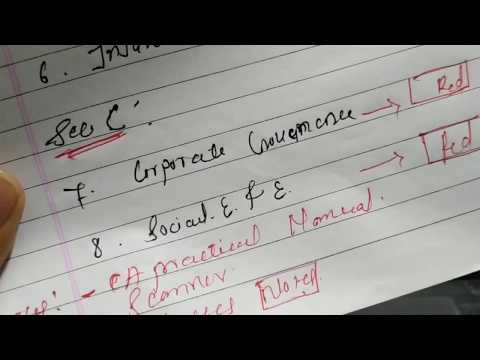 6.
Sec C:
7. Corporate Governance → Red
8. Social. E. & E. → Red
- CA Practical Manual.
Scanner.
Notes